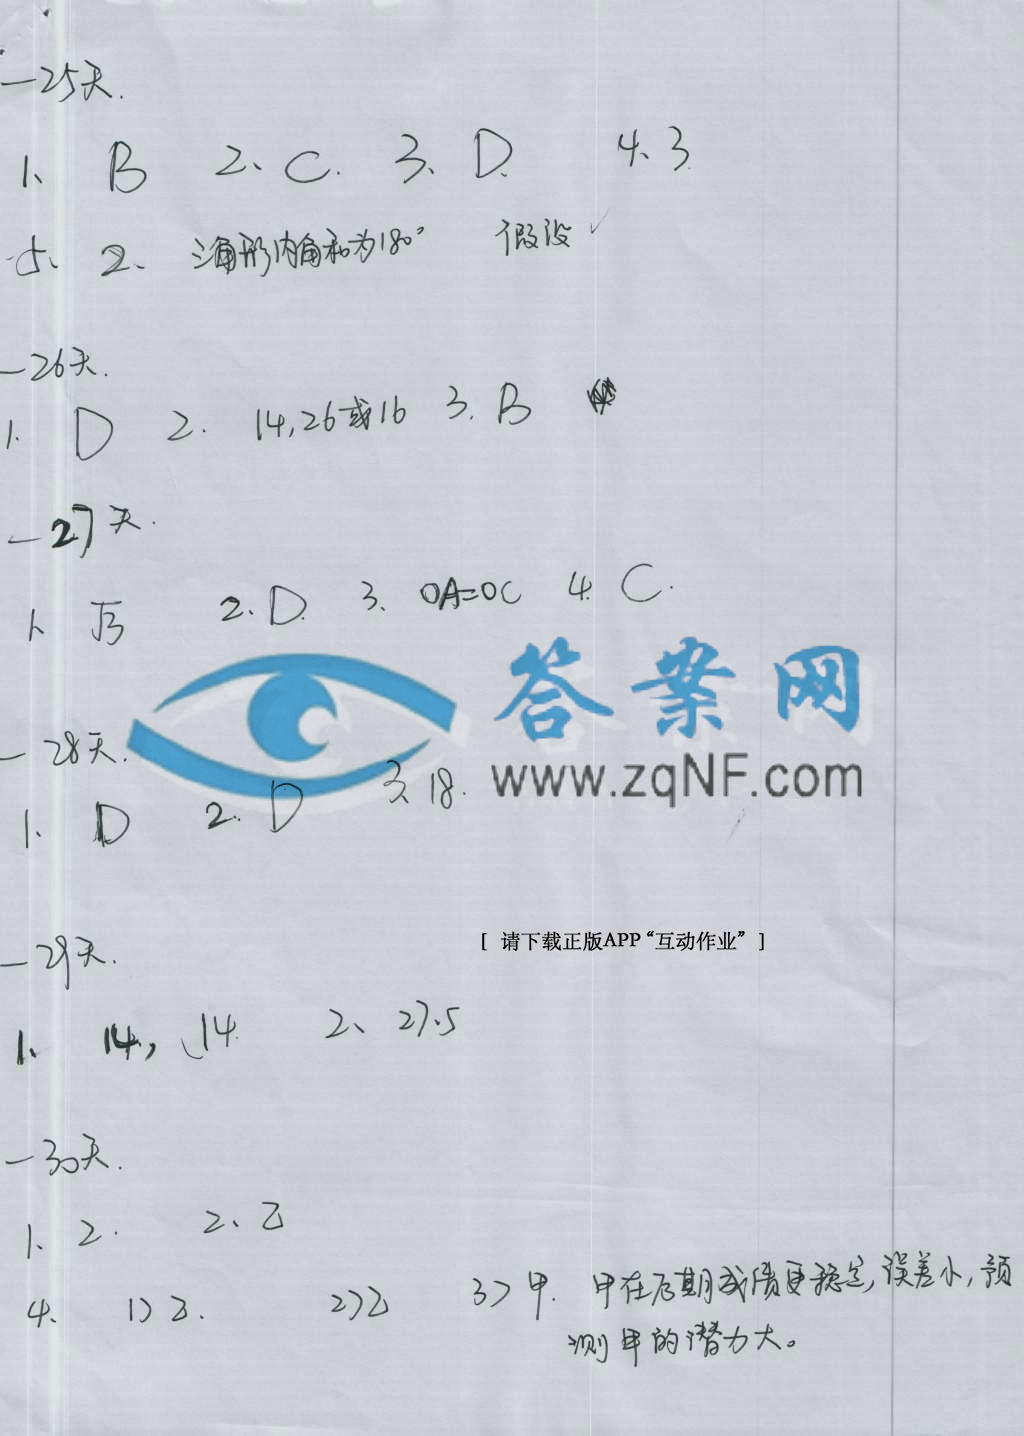 一25天.
1、 B 2、C. 3、D. 4、3
5、 2、 三角形内角和为180° 假设
一26天.
1. D 2. 14,26或16 3. B
一27天.
1、 √3 2. D. 3、 OA=OC 4. C.
答案网
www.zqNF.com
一28天.
1. D 2. D 3、18.
一29天.
[ 请下载正版APP“互动作业” ]
1、 14, 14 2、27.5
一30天.
1、2. 2、乙
4. 1)乙. 2)乙 3)甲. 甲在后期成绩更稳定,误差小,预
测甲的潜力大。